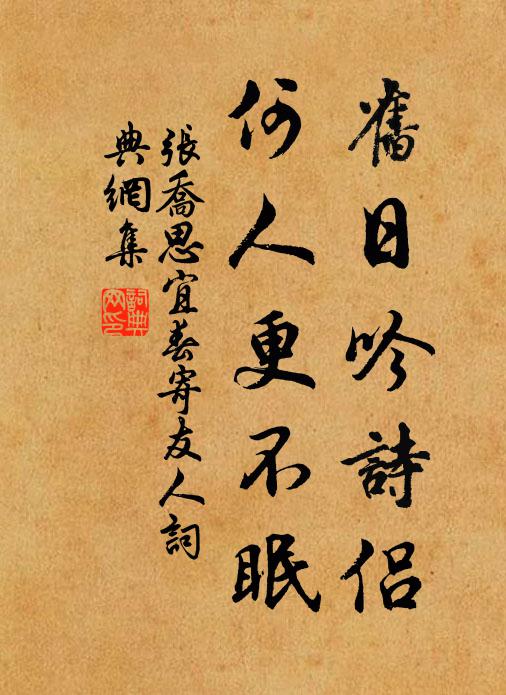 舊日吟詩侶
何人更不眠
張喬思宜春寄友人詞
典網集
詞典
网印